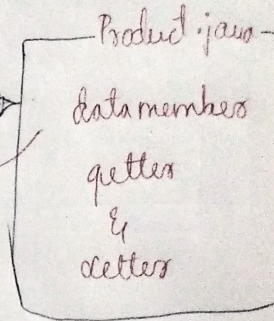 Product.java
datamember
getter
&
setter